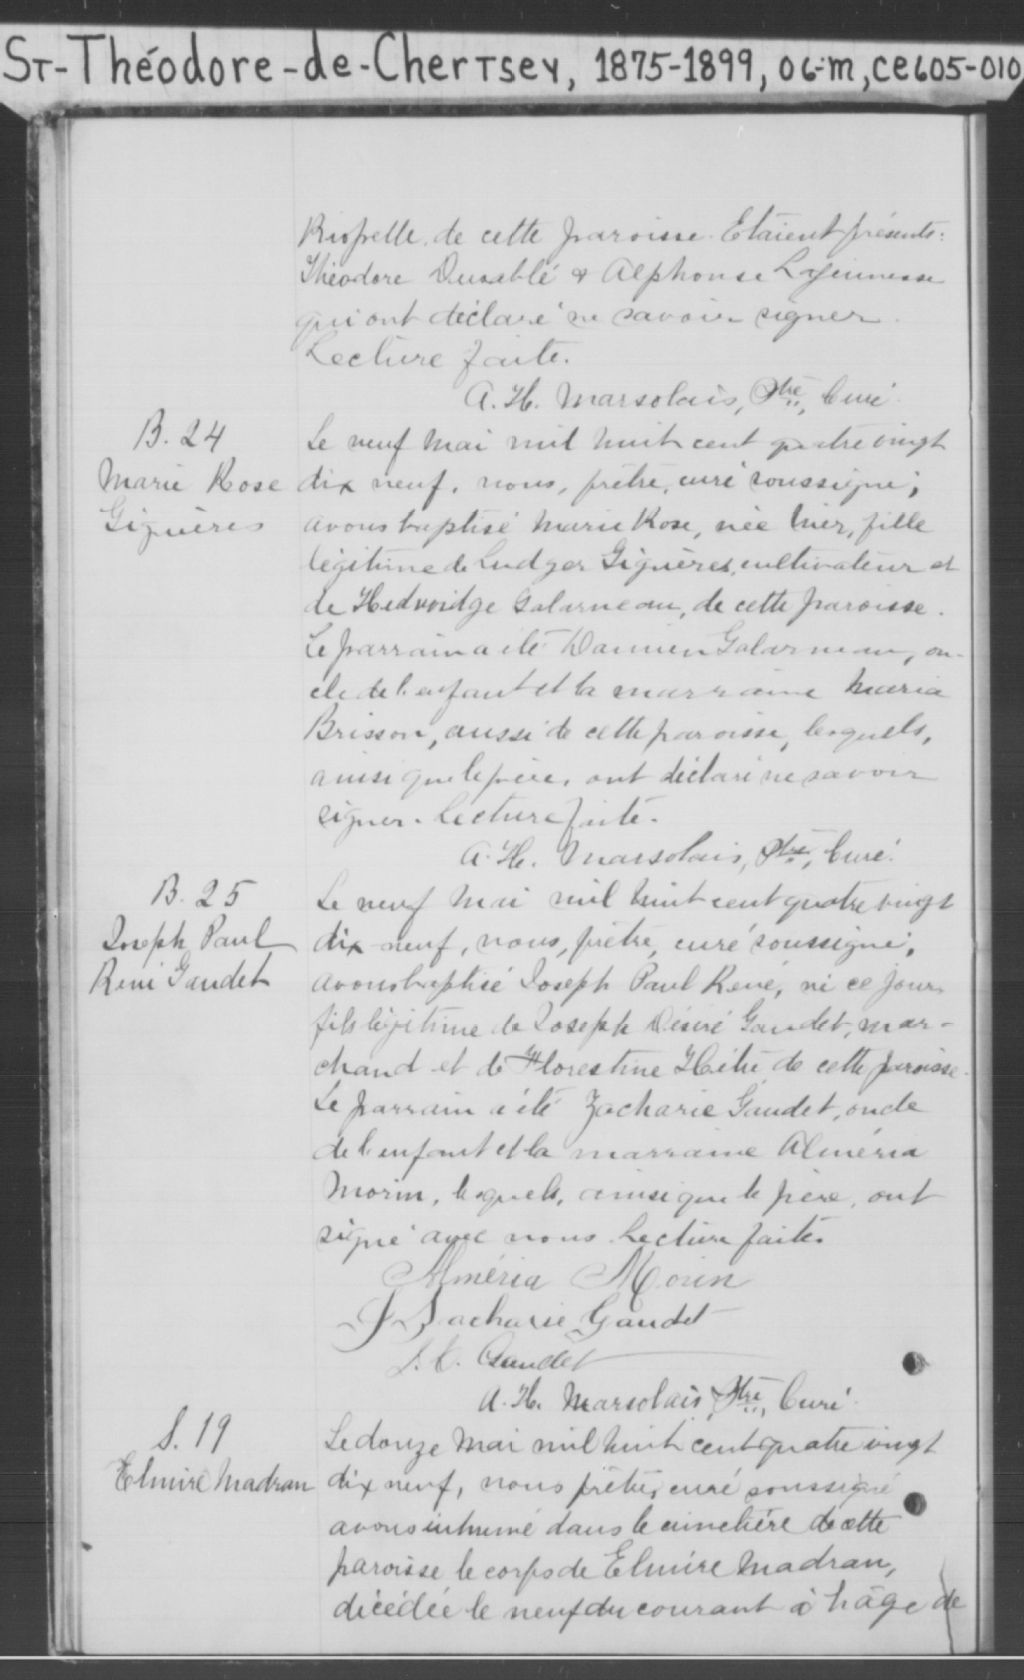 St-Théodore-de-Chertsey, 1875-1899, 06-m, CE605-010
Riopelle, de cette paroisse. Etaient présents:
Théodore Durablé & Alphonse Lajeunesse
qui ont déclaré ne savoir signer.
Lecture faite.
A. H. Marsolais, Ptre, Curé.
B. 24
Marie Rose
Giguères
Le neuf Mai mil huit cent quatre vingt
dix neuf, nous, prêtre, curé soussigné,
avons baptisé Marie Rose, née hier, fille
légitime de Ludger Giguères, cultivateur et
de Hedwidge Galarneau, de cette paroisse.
Le parrain a été Damien Galarneau, on-
cle de l'enfant et la marraine Maria
Brisson, aussi de cette paroisse, lesquels,
ainsi que le père, ont déclaré ne savoir
signer. Lecture faite.
A. H. Marsolais, Ptre, Curé.
B. 25
Joseph Paul
René Gaudet
Le neuf Mai mil huit cent quatre vingt
dix-neuf, nous, prêtre, curé soussigné,
avons baptisé Joseph Paul René, né ce jour
fils légitime de Joseph Désiré Gaudet, mar-
chand et de Florestine Hétu de cette paroisse.
Le parrain a été Zacharie Gaudet, oncle
de l'enfant et la marraine Alméria
Morin, lesquels, ainsi que le père, ont
signé avec nous. Lecture faite.
Alméria Morin
J Zacharie Gaudet
Gaudet
A. H. Marsolais, Ptre, Curé.
S. 19
Elmire Madran
Le douze Mai mil huit cent quatre vingt
dix neuf, nous prêtre, curé soussigné
avons inhumé dans le cimetière de cette
paroisse le corps de Elmire Madran,
décédée le neuf du courant à l'âge de